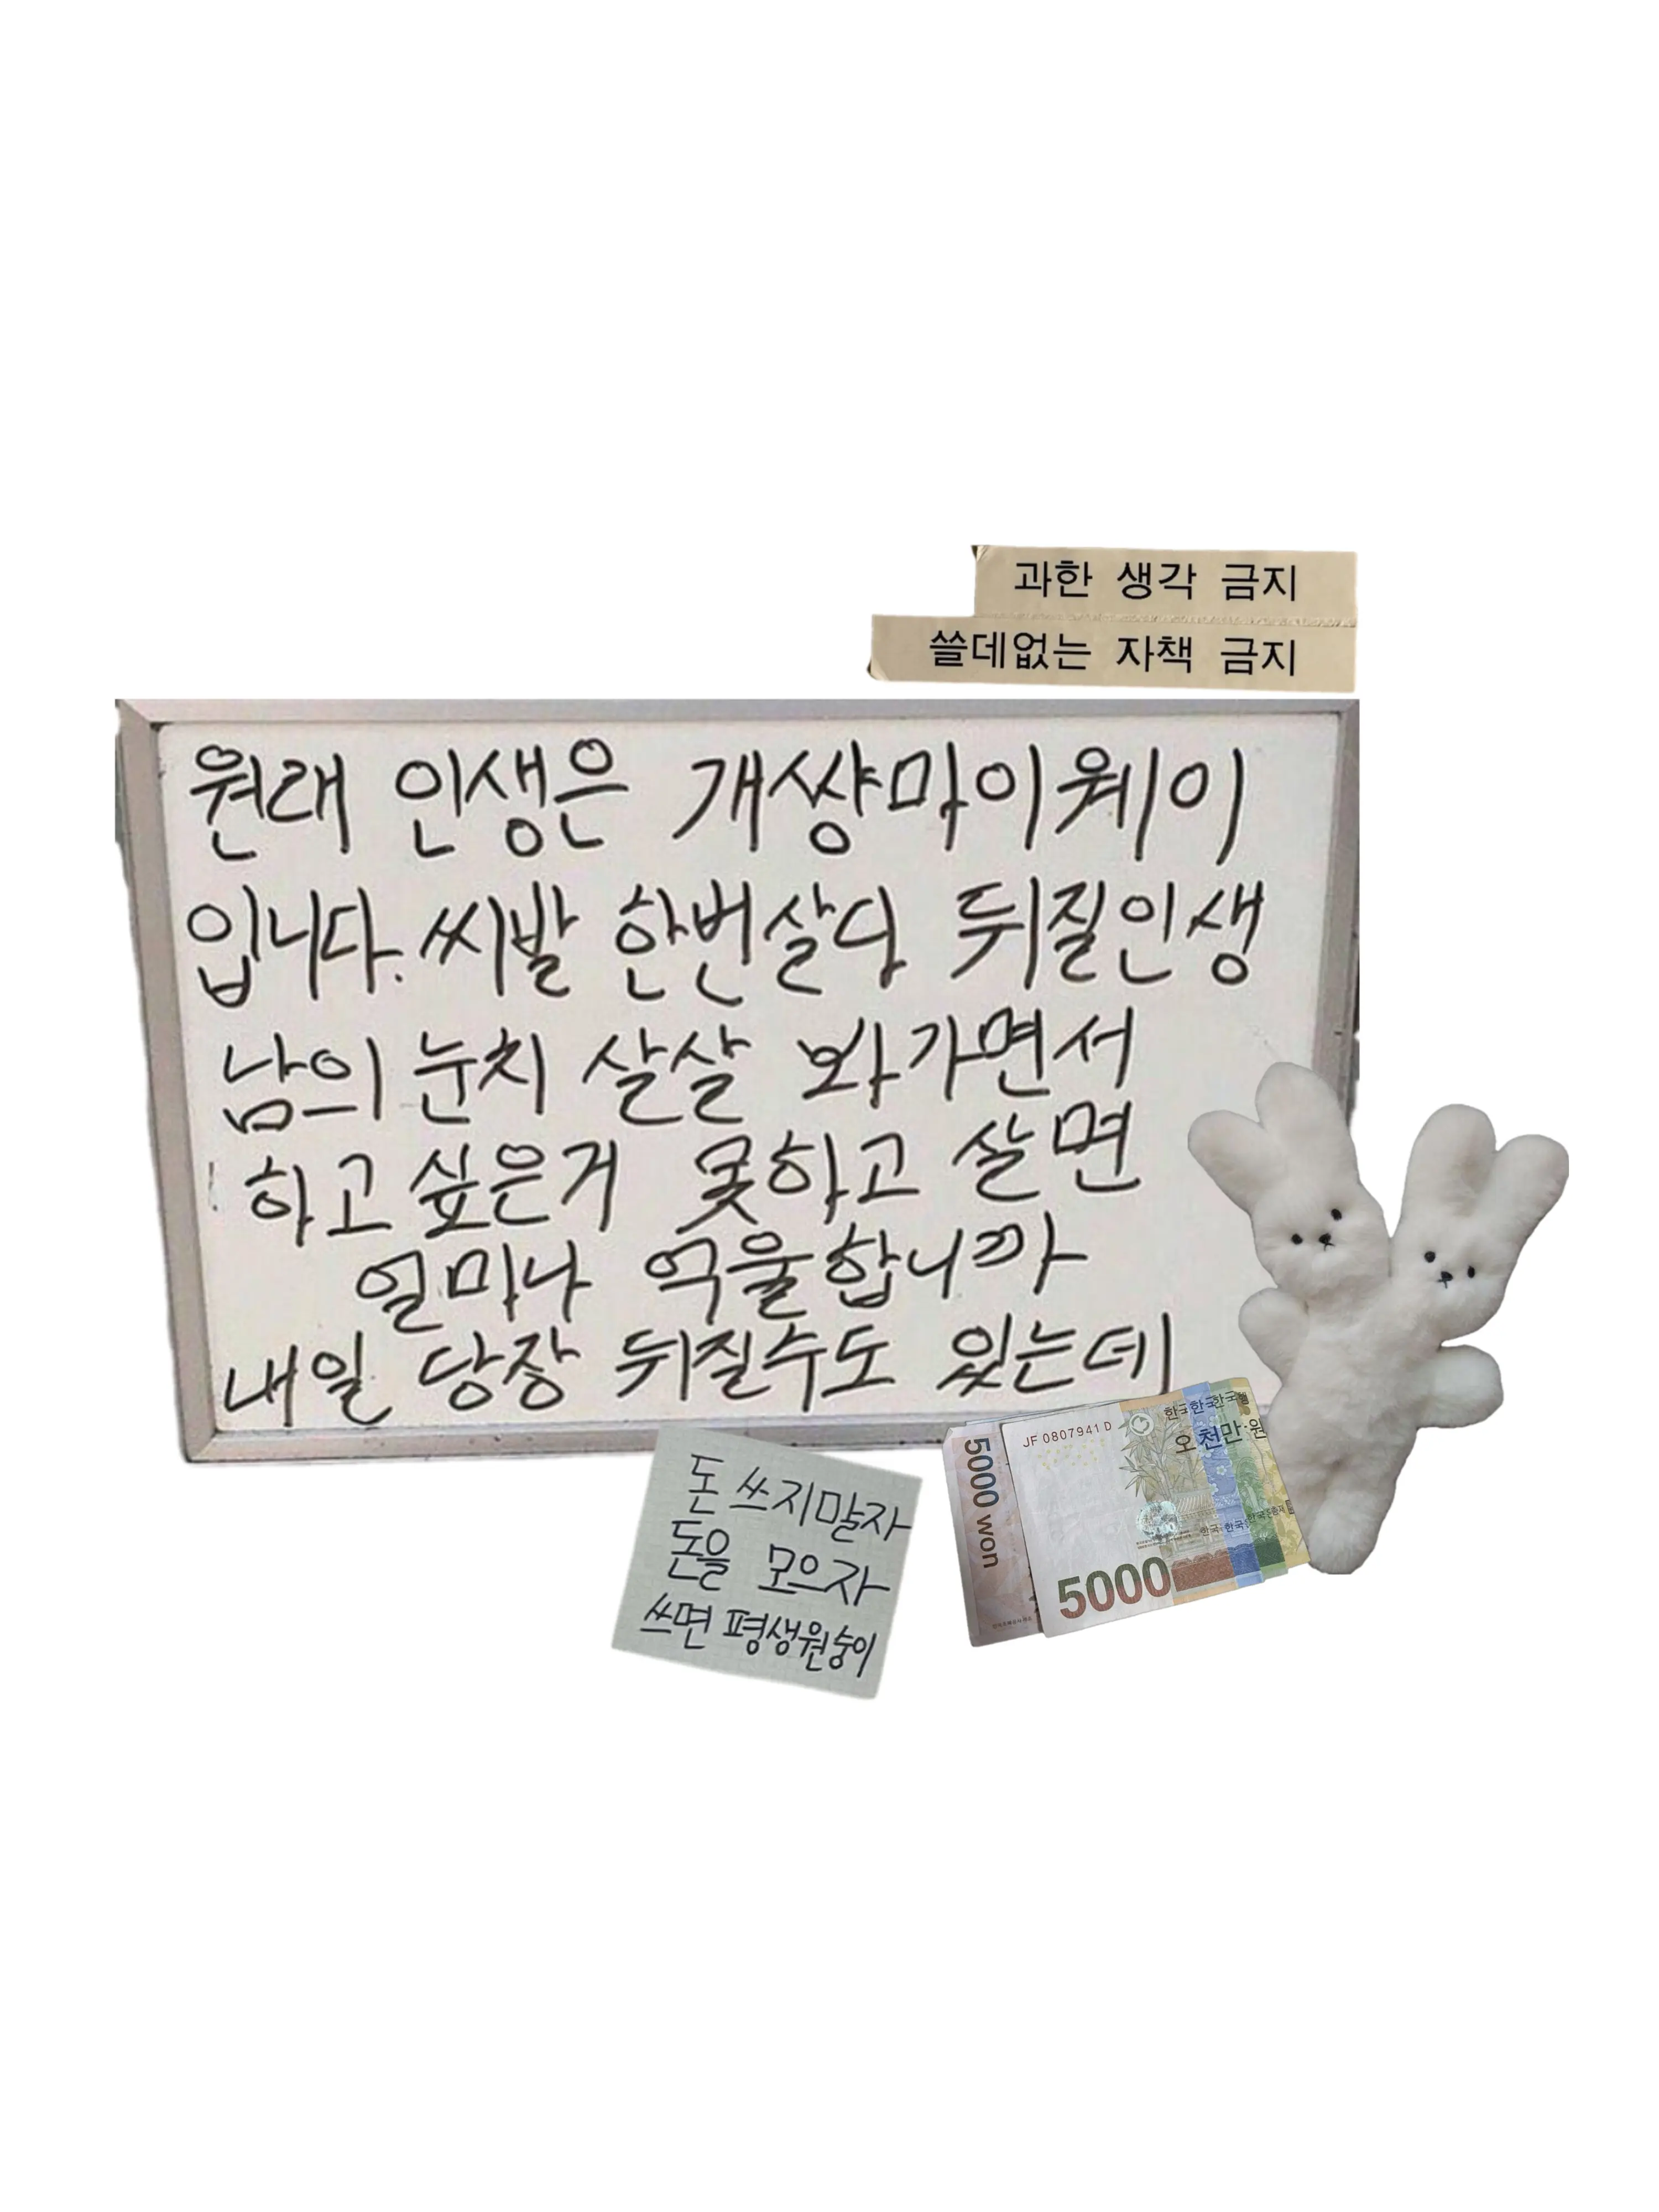 과한 생각 금지
쓸데없는 자책 금지
원래 인생은 개썅마이웨이
입니다. 씨발 한번살다 뒤질인생
남의 눈치 살살 봐가면서
하고 싶은거 못하고 살면
얼마나 억울합니까
내일 당장 뒤질수도 있는데
돈 쓰지말자
돈을 모으자
쓰면 평생원숭이
5000 won
JF 0807941 D
한국한국한국행
오천만원
5000